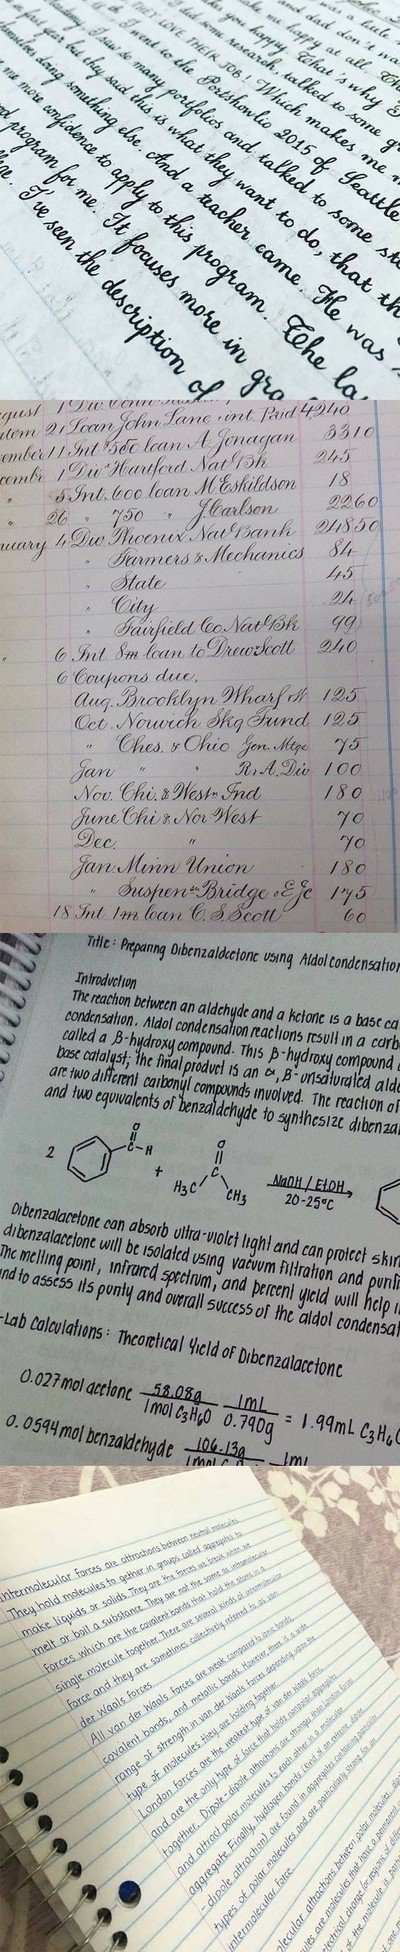 was a little
and dad don't wa
make me happy at all. Th
you happy. That's why I
I did some research, talked to some
THEY LOVE THEIR JOB! Which makes me
I went to the Portshowlio 2015 of Seattle
I saw so many portfolios and talked to some st
first year but they said this is what they want to do, that th
themselves doing something else. And a teacher came. He was
me more confidence to apply to this program. The la
program for me. It focuses more in gra
I've seen the description of
21 Loan John Lane int. Paid 4240
ember 11 Int 500 loan A Jonagan 3310
cembr 1 Div Hartford Nat'l Bk 245
" 5 Int. 600 loan M Eskildson 18
" 26 " 750 " J Carlson 2260
nuary 4 Div Phoenix Nat'l Bank 24850
" Farmers & Mechanics 84
" State 45
" City 24
" Fairfield Co. Nat'l Bk 99
" 6 Int 8m loan to Drew Scott 240
6 Coupons due,
Aug. Brooklyn Wharf 125
Oct. Norwich Skg Fund 125
" Ches. & Ohio Gen. Mtge 75
Jan " " R. A. Div 100
Nov. Chi. & West'n Ind 180
June Chi & Nor West 70
Dec. " 70
Jan. Minn Union 180
" Suspen'n Bridge & E Jc 175
18 Int 1m loan C. S Scott 60
Title: Preparing Dibenzaldcetone using Aldol Condensation
Introduction
The reaction between an aldehyde and a ketone is a base ca
condensation. Aldol condensation reactions result in a carb
called a β-hydroxy compound. This β-hydroxy compound
base catalyst; the final product is an α, β-unsaturated alde
are two different carbonyl compounds involved. The reaction of
and two equivalents of benzaldehyde to synthesize dibenzal
2 O C-H + O C H3C CH3 NaOH / EtOH 20-25°C
Dibenzalacetone can absorb ultra-violet light and can protect skin
dibenzalacetone will be isolated using vacuum filtration and purifi
The melting point, infrared spectrum, and percent yield will help i
nd to assess its purity and overall success of the aldol condensat
-Lab Calculations: Theoretical Yield of Dibenzalacetone
0.027mol acetone 58.08g 1mL = 1.99mL C3H6O
1mol C3H6O 0.790g
0.0594mol benzaldehyde 106.13g 1mL
Intermolecular forces are attractions between neutral molecules.
They hold molecules to gether in groups called aggregates to
make liquids or solids. They are the forces we break when we
melt or boil a substance. They are not the same as intramolecular
forces which are the covalent bonds that hold the atoms in a
single molecule together. There are several kinds of intermolecular
force and they are sometimes collectively referred to as van
der Waals forces.
All van der Waals forces are weak compared to ionic bonds,
covalent bonds, and metallic bonds. However, there is a wide
range of strength in van der Waals forces depending upon the
type of molecules they are holding together.
London forces are the weakest type of van der Waals force
and are the only type of force that holds nonpolar aggregates
together. Dipole-dipole attractions are stronger than London forces
and attract polar molecules to each other in a molecular
aggregate. Finally, hydrogen bonds (kind of an extreme dipole
-dipole attraction) are found in aggregates containing particular
types of polar molecules and are particularly strong for an
intermolecular force.
lecular attractions between polar molecules.
ules are molecules that have a permanent
of the molecule is